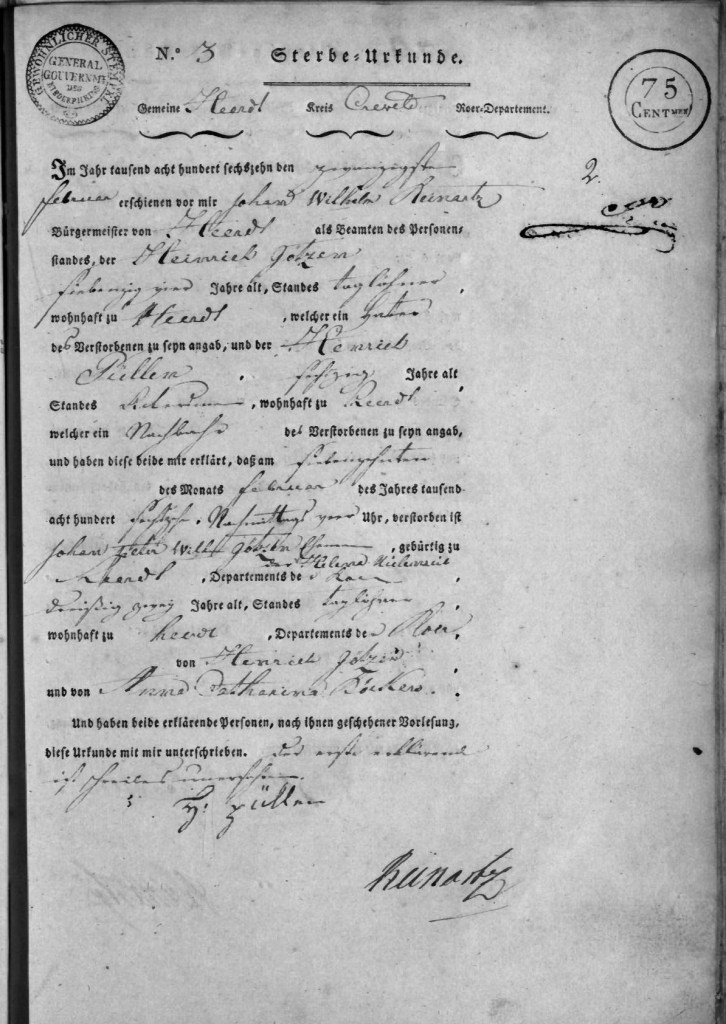 GEWÖHNLICHER STEMPEL
GENERAL
GOUVERNMT
DES
N.º 3 Sterbe=Urkunde.
75
CENTMEN
Gemeine Heerdt Kreis Creveld Roer=Departement.
Im Jahr tausend acht hundert sechszehn den zwanzigsten
februar erschienen vor mir Johan Wilhelm Reinartz
Bürgermeister von Heerdt als Beamten des Personen=
standes, der Heinrich Götzen
siebenzig vier Jahre alt, Standes taglöhner,
wohnhaft zu Heerdt, welcher ein Vater
des Verstorbenen zu seyn angab, und der Heinrich
Püllen, sechzig Jahre alt
Standes Ackersmann, wohnhaft zu Heerdt
welcher ein Nachbahr des Verstorbenen zu seyn angab,
und haben diese beide mir erklärt, daß am siebenzehnten
des Monats februar des Jahres tausend
acht hundert sechszehn, Nachmittags vier Uhr, verstorben ist
Johan Peter Wilh. Götzen Ehemann, gebürtig zu
der Helena
Heerdt, Departements der Roer
dreißig zwey Jahre alt, Standes taglöhner,
wohnhaft zu heerdt, Departements der Roer,
von Heinrich Götzen
und von Anna Catharina Böckers.
Und haben beide erklärende Personen, nach ihnen geschehener Vorlesung,
diese Urkunde mit mir unterschrieben. Der erste erklärend
ist schreibes unerfahren.
H: püllen
Reinartz
2.